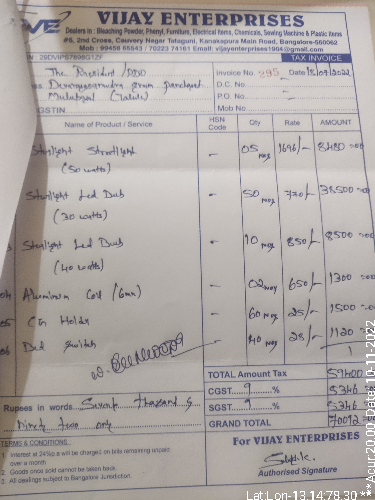 VIJAY ENTERPRISES
Dealers in : Bleaching Powder, Phenyl, Furniture, Electrical Items, Chemicals, Sewing Machine & Plastic Items
#6, 2nd Cross, Cauvery Nagar Tataguni, Kanakapura Main Road, Bangalore-560062
Mob : 99456 65543 / 70223 74161 Email: vijayenterprises1904@gmail.com
TAX INVOICE
The President / PDO
Mulabagal (Taluk)
GSTIN
Invoice No. 295 Date
D.C. No.
P.O. No.
Mob No.
Name of Product / Service HSN Code Qty Rate AMOUNT
Streetlight - 05 nos 1696/- 8480=00
(50 watts)
Led - 50 nos 770/- 38500=00
(30 watts)
Led - 10 nos 850/- 8500=00
(40 watts)
Aluminum Coil (6mm) - 02 nos 650/- 1300=00
05 Holder - 60 nos 25/- 1500=00
06 Switch - 40 nos 28/- 1120=00
TOTAL Amount Tax 59400
CGST 9 % 5346
SGST 9 % 5346
GRAND TOTAL 70092
Rupees in words Seventy Thousand &
Ninety two only
TERMS & CONDITIONS
1 Interest at 24%p.a will be charged on bills remaining unpaid
over a month
2 Goods once sold cannot be taken back.
3 All dealings subject to Bangalore Jurisdiction.
For VIJAY ENTERPRISES
Authorised Signature
Date: 10-11-2022
Lat Lon-13.14,78.30